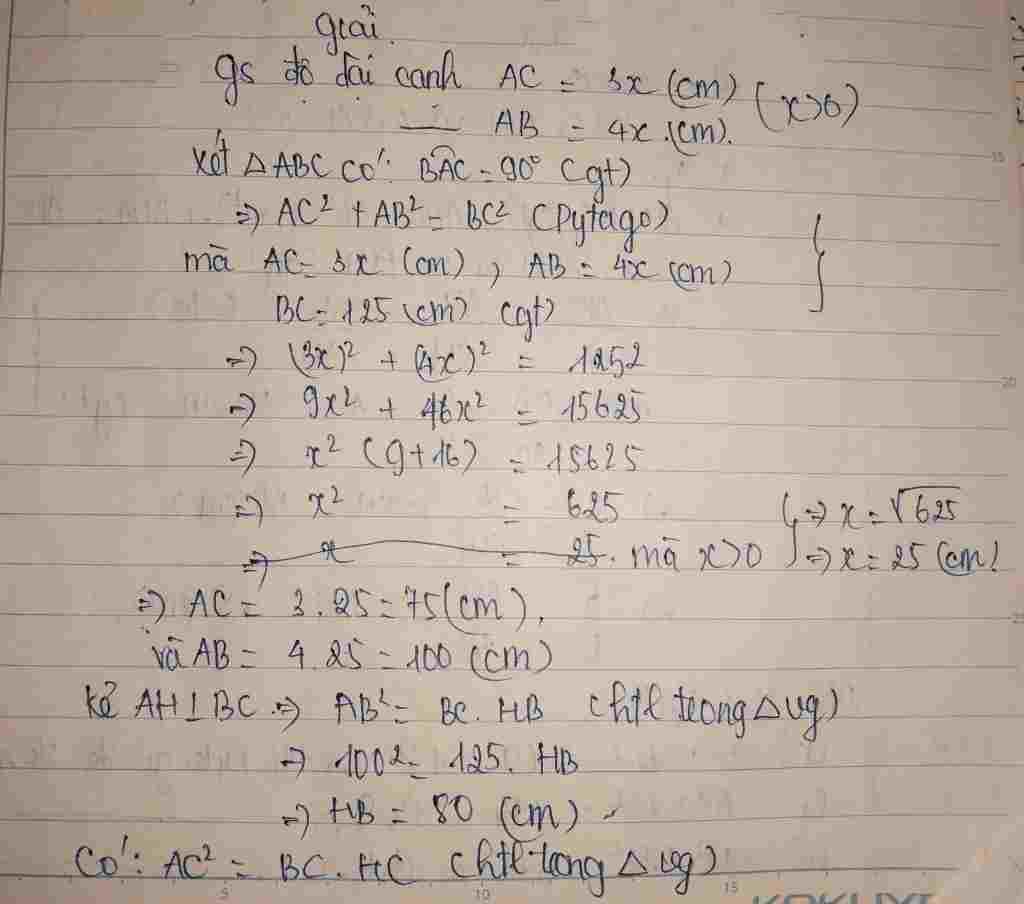 giải.
gs độ dài cạnh AC = 3x (cm) (x>0)
— AB = 4x (cm).
Xét △ABC có: BAC = 90° (gt)
=> AC² + AB² = BC² (Pytago)
mà AC = 3x (cm), AB = 4x (cm)
BC = 125 (cm) (gt)
=> (3x)² + (4x)² = 125²
=> 9x² + 16x² = 15625
=> x² (9+16) = 15625
=> x² = 625 => x = √625
=> x = 25. mà x>0 => x = 25 (cm)
=> AC = 3.25 = 75 (cm),
và AB = 4.25 = 100 (cm)
kẻ AH⊥BC => AB² = BC. HB (htl trong △vg)
=> 100² = 125. HB
=> HB = 80 (cm)
Có: AC² = BC. HC (htl trong △vg)
5 10 15